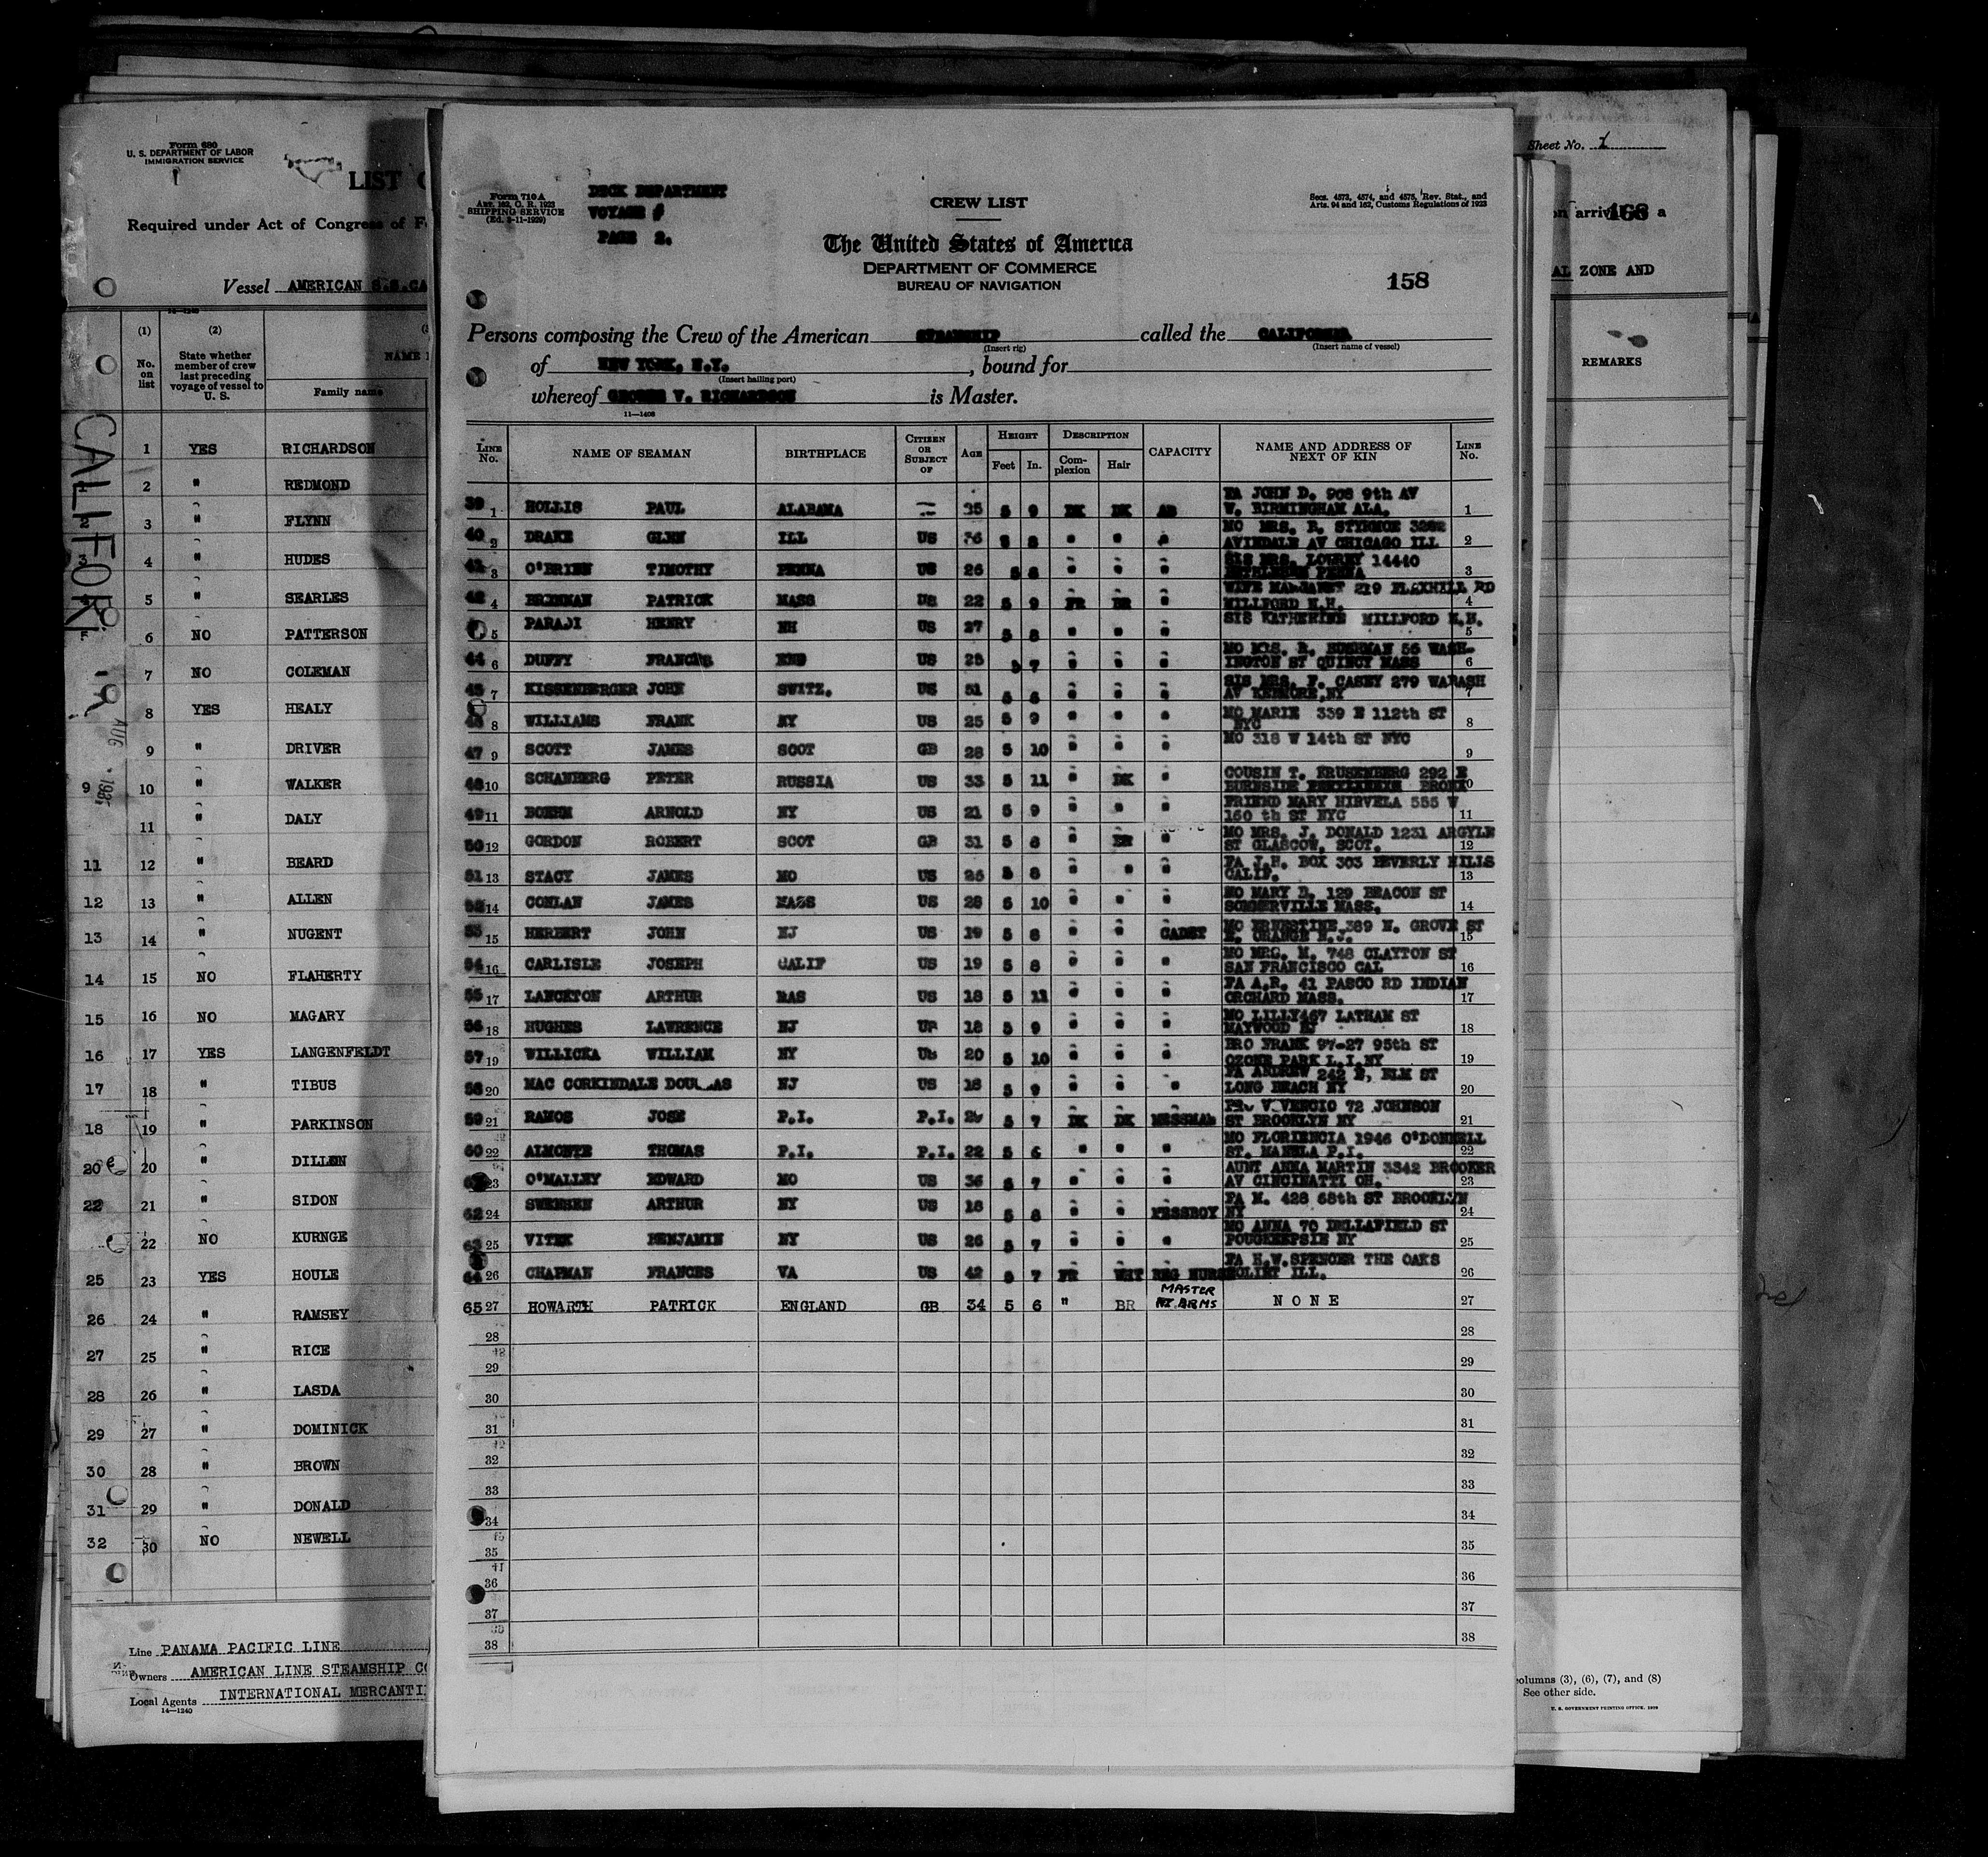 Form 680
U. S. DEPARTMENT OF LABOR
IMMIGRATION SERVICE
LIST
Required under Act of Congress of
Vessel AMERICAN S.S.CA
(1) (2)
No. on list
State whether member of crew last preceding voyage of vessel to U. S.
NAME
Family name
CALIFORNIA
1 YES RICHARDSON
2 " REDMOND
3 " FLYNN
4 " HUDES
5 " SEARLES
6 NO PATTERSON
7 NO COLEMAN
8 YES HEALY
9 " DRIVER
9 10 " WALKER
11 " DALY
11 12 " BEARD
12 13 " ALLEN
13 14 " NUGENT
14 15 NO FLAHERTY
15 16 NO MAGARY
16 17 YES LANGENFELDT
17 18 " TIBUS
18 19 " PARKINSON
20 20 " DILLEN
22 21 " SIDON
22 NO KURNGE
25 23 YES HOULE
26 24 " RAMSEY
27 25 " RICE
28 26 " LASDA
29 27 " DOMINICK
30 28 " BROWN
31 29 " DONALD
32 30 NO NEWELL
Line PANAMA PACIFIC LINE
Owners AMERICAN LINE STEAMSHIP CO
Local Agents INTERNATIONAL MERCANTI
14—1240
Form 710 A
Art. 162, C. R. 1923
SHIPPING SERVICE
(Ed. 3-11-1929)
DECK DEPARTMENT
VOYAGE #
PAGE 2.
CREW LIST
Secs. 4573, 4574, and 4575, Rev. Stat., and
Arts. 94 and 162, Customs Regulations of 1923
The United States of America
DEPARTMENT OF COMMERCE
BUREAU OF NAVIGATION
158
Persons composing the Crew of the American STEAMSHIP called the CALIFORNIA
(Insert rig) (Insert name of vessel)
of NEW YORK, N.Y. , bound for
(Insert hailing port)
whereof GEORGE V. RICHARDSON is Master.
11—1408
LINE No. NAME OF SEAMAN BIRTHPLACE CITIZEN OR SUBJECT OF AGE HEIGHT Feet In. DESCRIPTION Complexion Hair CAPACITY NAME AND ADDRESS OF NEXT OF KIN LINE No.
39 1 HOLLIS PAUL ALABAMA 35 5 9 DK DK AB FA JOHN D. 908 9th AV W. BIRMINGHAM ALA. 1
40 2 DRAKE GLEN ILL US 36 8 " " " MO MRS. R. AV CHICAGO ILL 2
41 3 O'BRIEN TIMOTHY PENNA US 26 5 8 " " " SIS MRS. LOWREY 14440 PENNA 3
42 4 BRENNAN PATRICK MASS US 22 5 9 FR BR " WIFE MARGARET 219 FLAXHILL RD MILLFORD N.H. 4
5 PARADI HENRY NH US 27 5 8 " " " SIS KATHERINE MILLFORD N.H. 5
44 6 DUFFY FRANCIS US 25 5 7 " " " MO MRS. R. 56 WASHINGTON ST QUINCY MASS 6
45 7 KISSENBERGER JOHN SWITZ. US 51 5 6 " " " SIS MRS. F. CASEY 279 WABASH AV KENMORE,NY 7
46 8 WILLIAMS FRANK NY US 25 5 9 " " " MO MARIE 339 E 112th ST NYC 8
47 9 SCOTT JAMES SCOT GB 28 5 10 " " " MO 318 W 14th ST NYC 9
48 10 SCHANBERG PETER RUSSIA US 33 5 11 " DK " COUSIN T. KRUSENBERG 292 E BURNSIDE BRONX 10
49 11 BOEHM ARNOLD NY US 21 5 9 " " " FRIEND MARY HIRVELA 555 W 160 th ST NYC 11
50 12 GORDON ROBERT SCOT GB 31 5 8 " BR " MO MRS. J. DONALD 1231 ARGYLE ST GLASCOW, SCOT. 12
51 13 STACY JAMES MO US 26 5 8 " " " FA J.H. BOX 303 BEVERLY HILLS CALIF. 13
52 14 CONLAN JAMES MASS US 28 5 10 " " " MO MARY D. 129 BEACON ST SOMMERVILLE MASS. 14
53 15 HERBERT JOHN NJ US 19 5 8 " " CADET MO ERNESTINE 389 N. GROVE ST E. ORANGE N.J. 15
54 16 CARLISLE JOSEPH CALIF US 19 5 8 " " " MO MRS. M. 748 CLAYTON ST SAN FRANCISCO CAL 16
55 17 LANGKTON ARTHUR MAS US 18 5 11 " " " FA A.R. 41 PASCO RD INDIAN ORCHARD MASS. 17
56 18 HUGHES LAWRENCE NJ US 18 5 9 " " " MO LILLY467 LATHAM ST MAYWOOD NJ 18
57 19 WILLICKA WILLIAM NY US 20 5 10 " " " BRO FRANK 97-27 95th ST OZONE PARK L.I.NY 19
58 20 MAC CORKINDALE DOUGLAS NJ US 18 5 9 " " " FA ANDREW 242 E, ELM ST LONG BEACH NY 20
59 21 RAMOS JOSE P.I. P.I. 26 5 7 DK DK MESSMAN 72 JOHNSON ST BROOKLYN NY 21
60 22 ALMONTE THOMAS P.I. P.I. 22 5 6 " " " MO FLORIENCIA 1946 O'DONNELL ST. MANELA P.I. 22
23 O'MALLEY EDWARD MO US 36 5 7 " " " AUNT ANNA MARTIN 3342 BROOKER AV CINCINATTI OH. 23
62 24 SWENSEN ARTHUR NY US 18 5 8 " " MESSBOY FA M. 428 68th ST BROOKLYN NY 24
63 25 VITEK BENJAMIN NY US 26 5 7 " " " MO ANNA 70 DELLAFIELD ST POUGKEEPSIE NY 25
64 26 CHAPMAN FRANCES VA US 42 5 7 FR WHT REG NURSE FA H.W.SPENCER THE OAKS JOLIET ILL. 26
65 27 HOWARTH PATRICK ENGLAND GB 34 5 6 " BR MASTER AT ARMS NONE 27
28 28
29 29
30 30
31 31
32 32
33 33
34 34
35 35
36 36
37 37
38 38
Sheet No. 1
on arrival a
168
AL ZONE AND
REMARKS
columns (3), (6), (7), and (8)
See other side.
U. S. GOVERNMENT PRINTING OFFICE. 1929